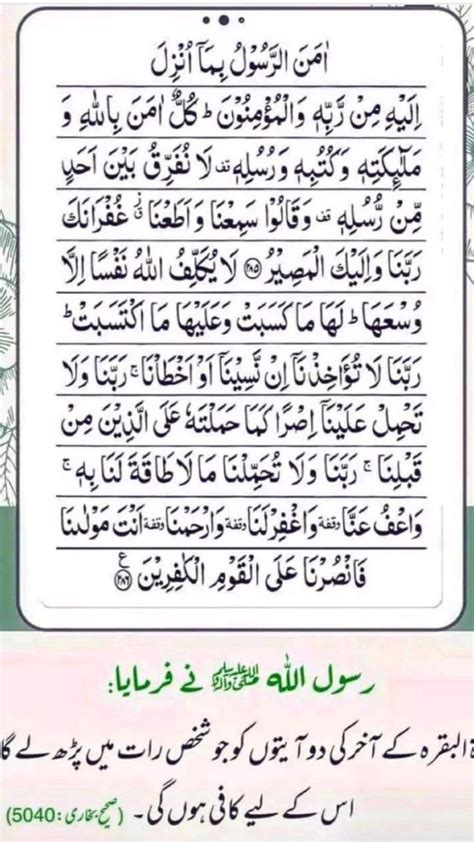 اٰمَنَ الرَّسُوْلُ بِمَآ اُنْزِلَ
اِلَيْهِ مِنْ رَّبِّهٖ وَالْمُؤْمِنُوْنَ ؕ كُلٌّ اٰمَنَ بِاللّٰهِ وَ
مَلٰٓئِكَتِهٖ وَكُتُبِهٖ وَرُسُلِهٖ قف لَا نُفَرِّقُ بَيْنَ اَحَدٍ
مِّنْ رُّسُلِهٖ قف وَقَالُوْا سَمِعْنَا وَاَطَعْنَا غُفْرَانَكَ
رَبَّنَا وَاِلَيْكَ الْمَصِيْرُ ﴿۲۸۵﴾ لَا يُكَلِّفُ اللّٰهُ نَفْسًا اِلَّا
وُسْعَهَا ؕ لَهَا مَا كَسَبَتْ وَعَلَيْهَا مَا اكْتَسَبَتْ ؕ
رَبَّنَا لَا تُؤَاخِذْنَآ اِنْ نَّسِيْنَآ اَوْ اَخْطَاْنَا ۚ رَبَّنَا وَلَا
تَحْمِلْ عَلَيْنَآ اِصْرًا كَمَا حَمَلْتَهٗ عَلَى الَّذِيْنَ مِنْ
قَبْلِنَا ۚ رَبَّنَا وَلَا تُحَمِّلْنَا مَا لَا طَاقَةَ لَنَا بِهٖ ۚ
وَاعْفُ عَنَّا وقفة وَاغْفِرْ لَنَا وقفة وَارْحَمْنَا وقفة اَنْتَ مَوْلٰىنَا
فَانْصُرْنَا عَلَى الْقَوْمِ الْكٰفِرِيْنَ ﴿۲۸۶﴾ ع
رسول اللہ ﷺ نے فرمایا:
ۃ البقرہ کے آخر کی دو آیتوں کو جو شخص رات میں پڑھ لے گا
اس کے لیے کافی ہوں گی۔ (صحیح بخاری: 5040)